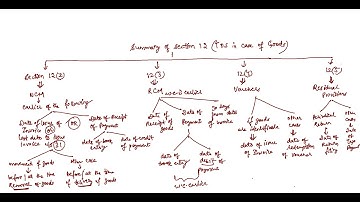 Summary of Section 12 (TOS in case of Goods)
Section 12(2)
12(3)
12(4)
12(5)
NCM
RCM w.e. is earlier
Vouchers
Residual
Provisions
earlier of the following
Date of Issue of
Invoice OR
last date to issue
Invoice u/s 31
Date of Receipt
of
Payment
date of book entry
date of credit
of payment
movement of goods
before/at the time
Removal of goods
Other case
before/at the time
of delivery of goods
Date of
Receipt of
goods
Date of
Payment
30 days from
date of
invoice
date of
book entry
date of
debit of
payment
w.e. is earlier
if goods
are identifiable
date of issue
of Invoice
other
case
date of
redemption
of voucher
Periodical
return
Date of
Return
Other
case
Date of
Payment